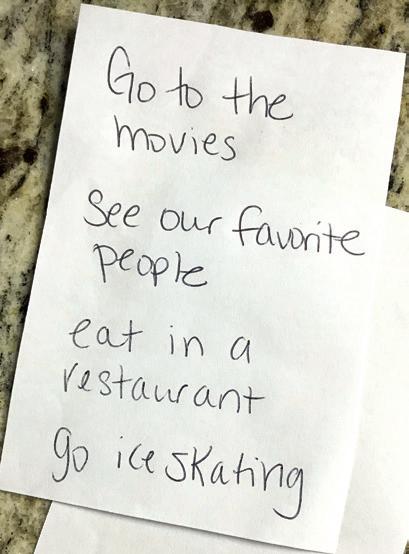 Go to the
movies
See our favorite
people
eat in a
restaurant
go ice skating